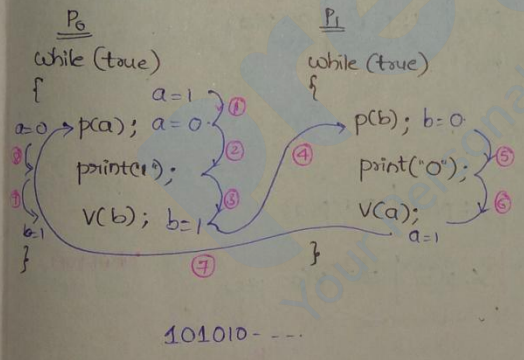 P0
while (true)
{
a=1
①
a=0
p(a); a=0
②
⑧
print("1");
③
⑨
V(b); b=1
b=1
}
④
⑦
P1
while (true)
{
p(b); b=0
⑤
print("0");
⑥
V(a);
a=1
}
101010-----